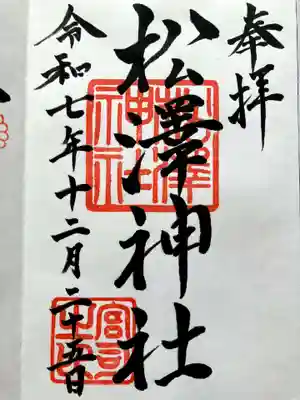 奉拝
松澤神社
令和七年十二月二十五日
松澤神社
宮司之印